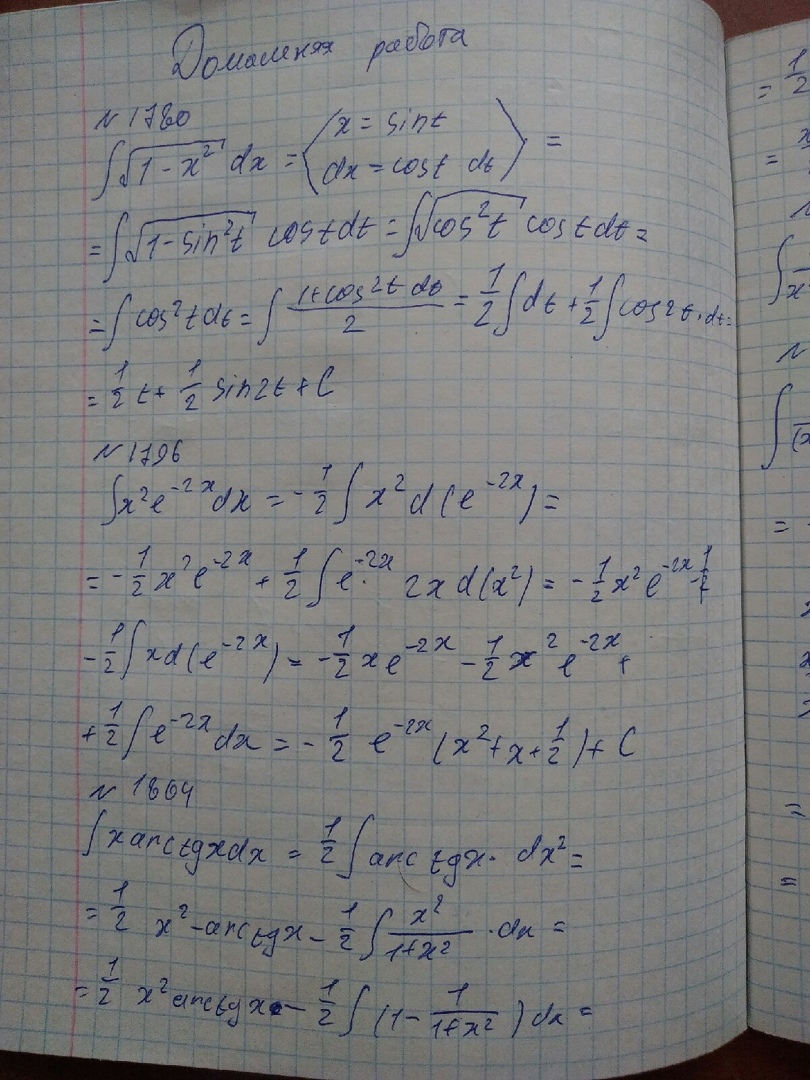 Домашняя работа
№ 1780
∫√(1-x²) dx = ⟨x = sint
dx = cost dt⟩ =
= ∫√(1-sin²t) cost dt = ∫√(cos²t) cost dt =
= ∫ cos²t dt = ∫ (1+cos2t dt)/2 = 1/2 ∫ dt + 1/2 ∫ cos2t · dt =
= 1/2 t + 1/2 sin2t + C
№ 1796
∫x²e^(-2x)dx = -1/2 ∫ x² d(e^(-2x)) =
= -1/2 x²e^(-2x) + 1/2 ∫ e^(-2x) · 2x d(x²) = -1/2 x² e^(-2x) -
-1/2 ∫ x d(e^(-2x)) = -1/2 x e^(-2x) - 1/2 x² e^(-2x) +
+ 1/2 ∫ e^(-2x) dx = -1/2 e^(-2x) (x²+x+1/2) + C
№ 1804
∫ x arctgx dx = 1/2 ∫ arctgx · dx² =
= 1/2 x² - arctgx - 1/2 ∫ x²/(1+x²) · dx =
= 1/2 x² arctgx - 1/2 ∫ (1 - 1/(1+x²)) dx =